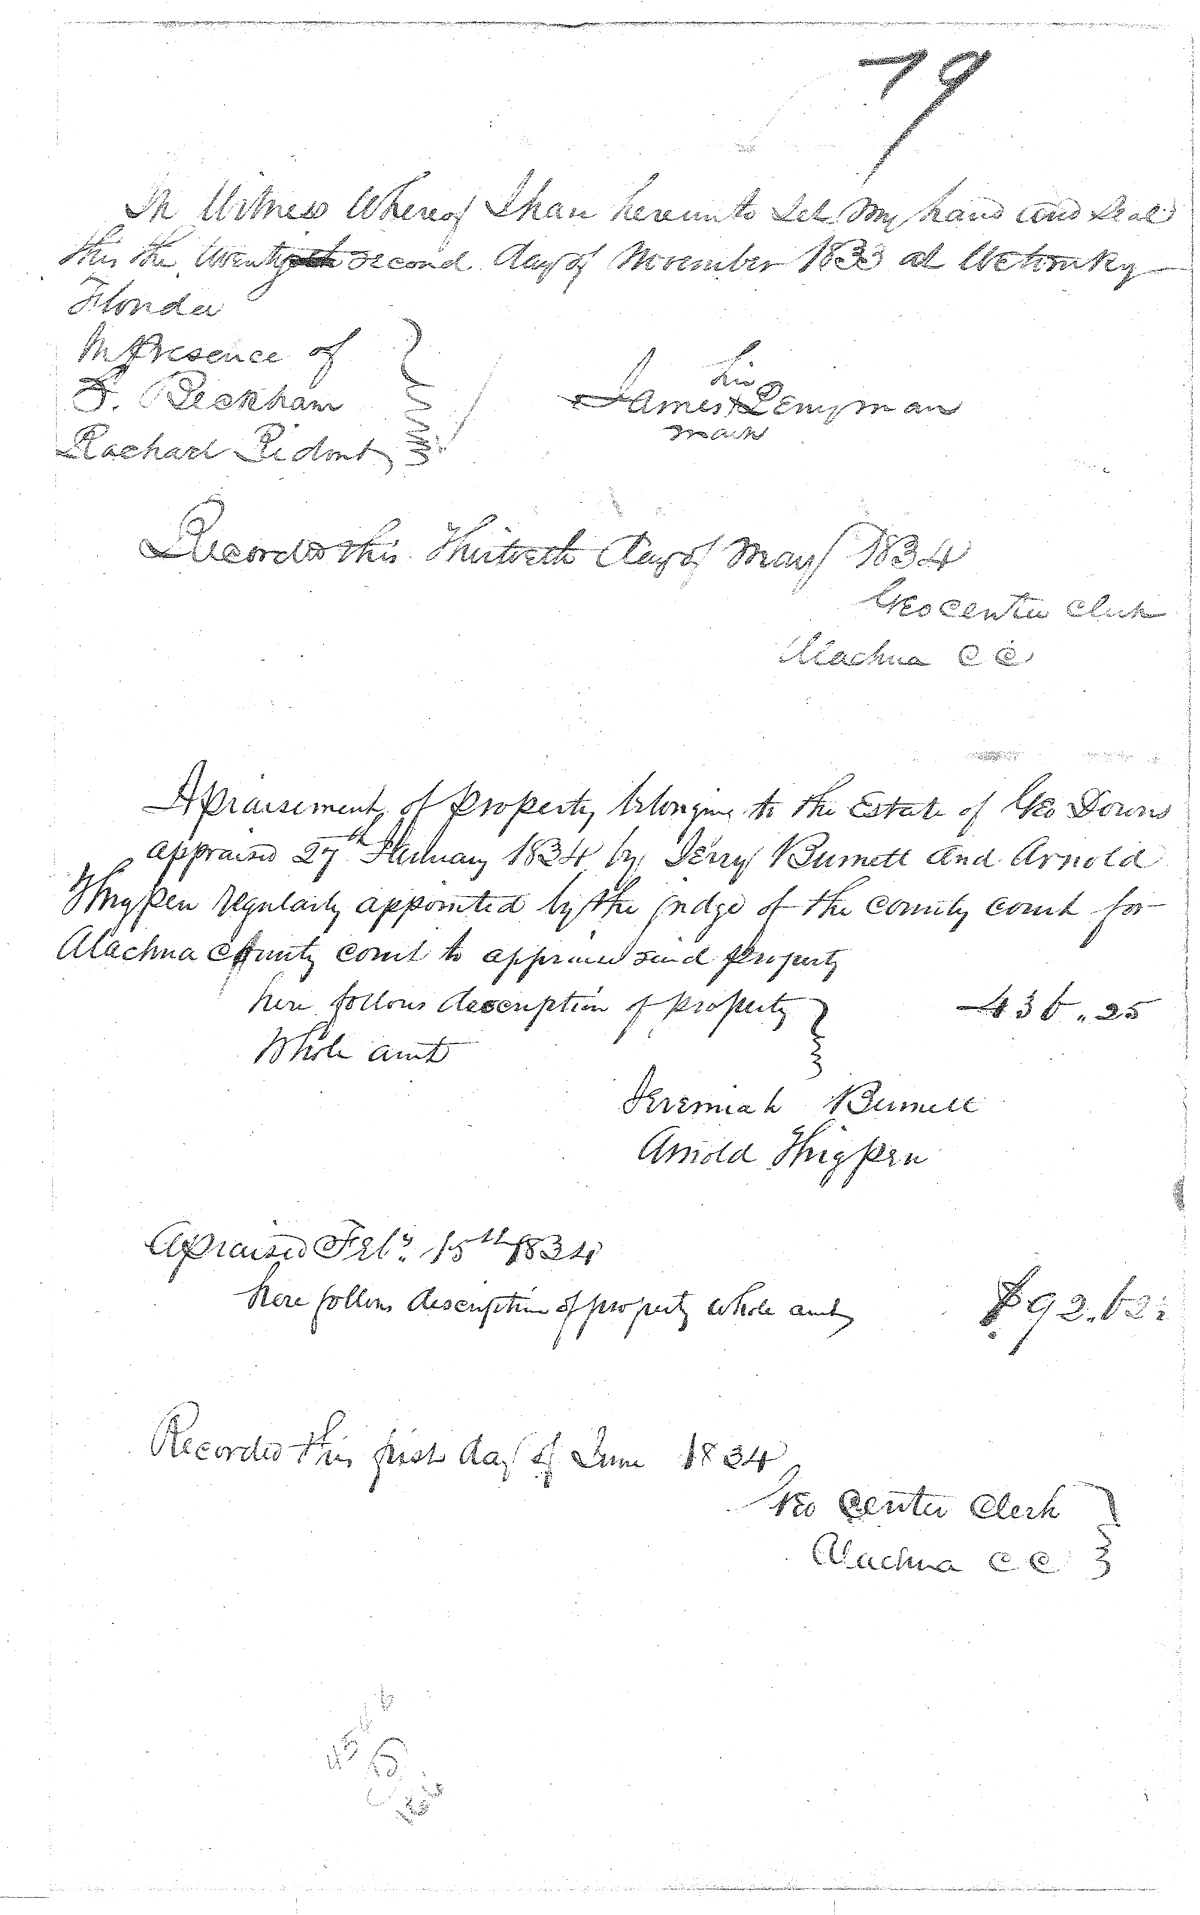 79
In Witness Whereof I have hereunto Set my hand and Seal
this the twenty second day of November 1833 at Wetumky
Florida
In presence of
S. Beckham
Rachael Ridout
his
James X Penyman
mark
Recorded this Thirtieth day of May 1834
Geo Center Clerk
Alachua C C
Apraisement of Property belonging to the Estate of Geo Downs
appraised 27th January 1834 by Jerry Burnett and Arnold
Thigpen regularly appointed by the judge of the county court for
Alachua county court to appraise said property
here follows description of property 436.25
Whole amt
Jeremiah Burnett
Arnold Thigpen
Apraised Feby. 15th 1834
here follows description of property whole amt $92.62
Recorded this first day of June 1834
Geo Center Clerk
Alachua C C